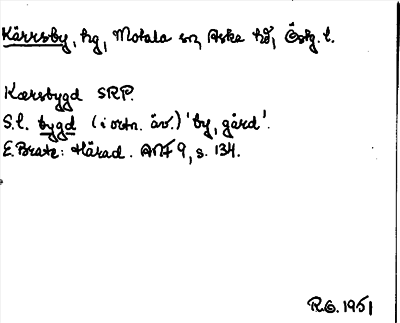 Kärrsby, hg, Motala sn, Aska hd, Ög. l.
Kærsbygd SRP.
S.l. bygd (i ortn. äv.) 'by, gård'.
E. Brate: Härad. ANF 9, s. 134.
R.G. 1951